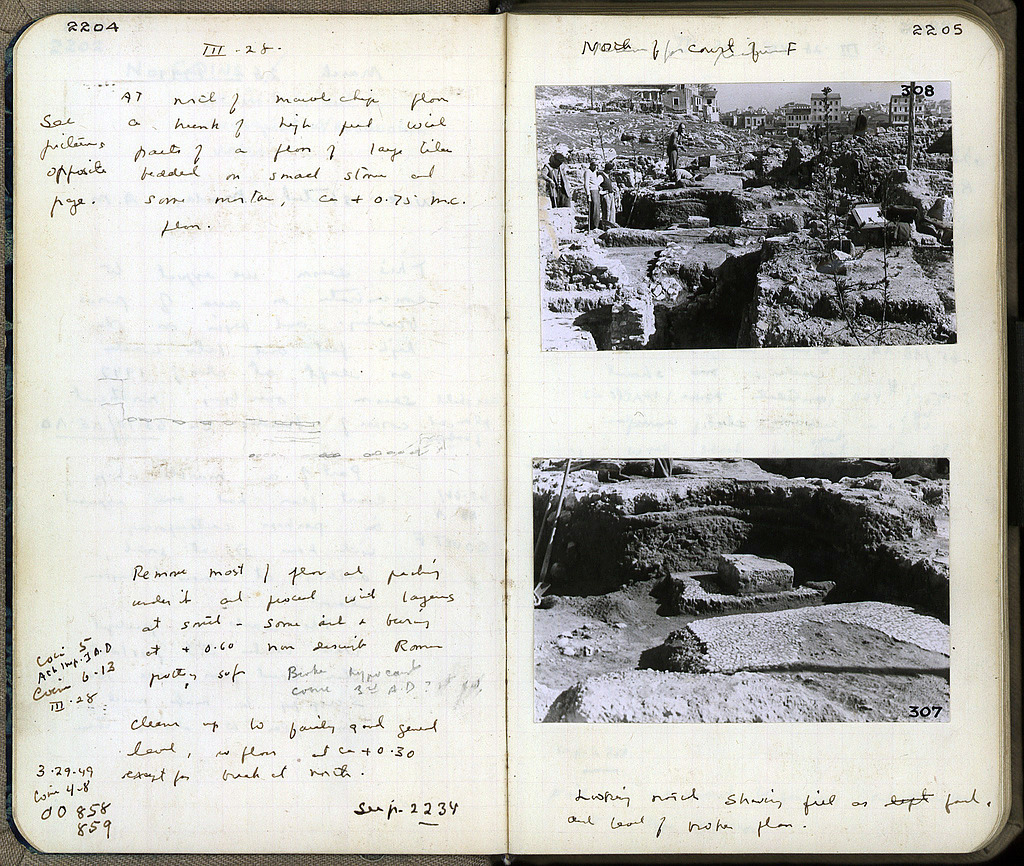 2204
III-28.
At north of marble chip floor
a trunk of high fill with
See
pictures
opposite
page.
parts of a floor of large tiles
bedded on small stone and
some mortar, ca + 0.75 m.c.
floor.
Remove most of floor and packing
under it and proceed with layers
at south - some ash & burning
at + 0.60 non descript Roman
pottery so far
Broken hypocaust
Coin 5
A.D
Coin 6-13
III-28
Clean up to fairly good general
level, no floor at ca + 0.30
except for at north.
3-29-49
Coin 4-8
00 858
859
See p. 2234
2205
North of court F
308
307
Looking north showing fill as found,
and level of broken floor.